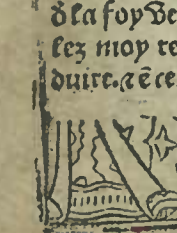 de la foy de
lez moy re
duire. ⁊ē ce